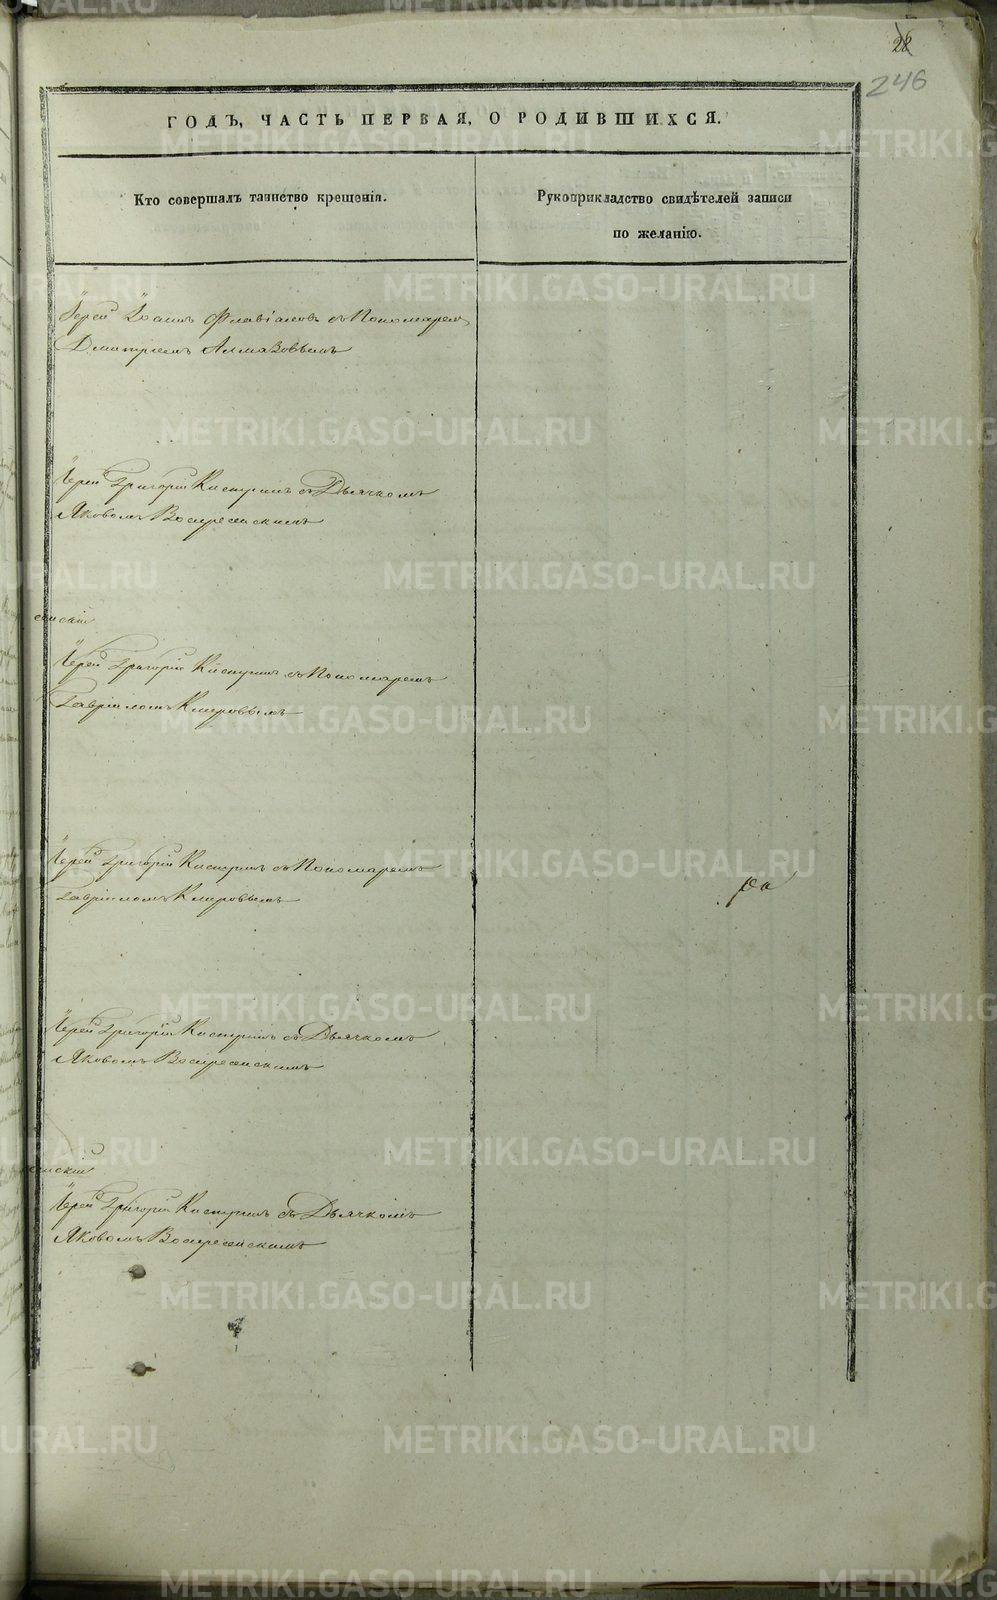 246
ГОДЪ, ЧАСТЬ ПЕРВАЯ, О РОДИВШИХСЯ.
Кто совершалъ таинство крещенія.
Рукоприкладство свидѣтелей записи
по желанію.
Іерей Іоаннъ Флавіановъ съ Пономаремъ
Дмитріемъ Алмазовымъ
Іерей Григорій съ Дьячкомъ
Яковомъ Воскресенскимъ
Іерей Григорій съ Пономаремъ
Гавріиломъ
Іерей Григорій съ Пономаремъ
Гавріиломъ
Іерей Григорій съ Дьячкомъ
Яковомъ Воскресенскимъ
Іерей Григорій съ Дьячкомъ
Яковомъ Воскресенскимъ
METRIKI.GASO-URAL.RU